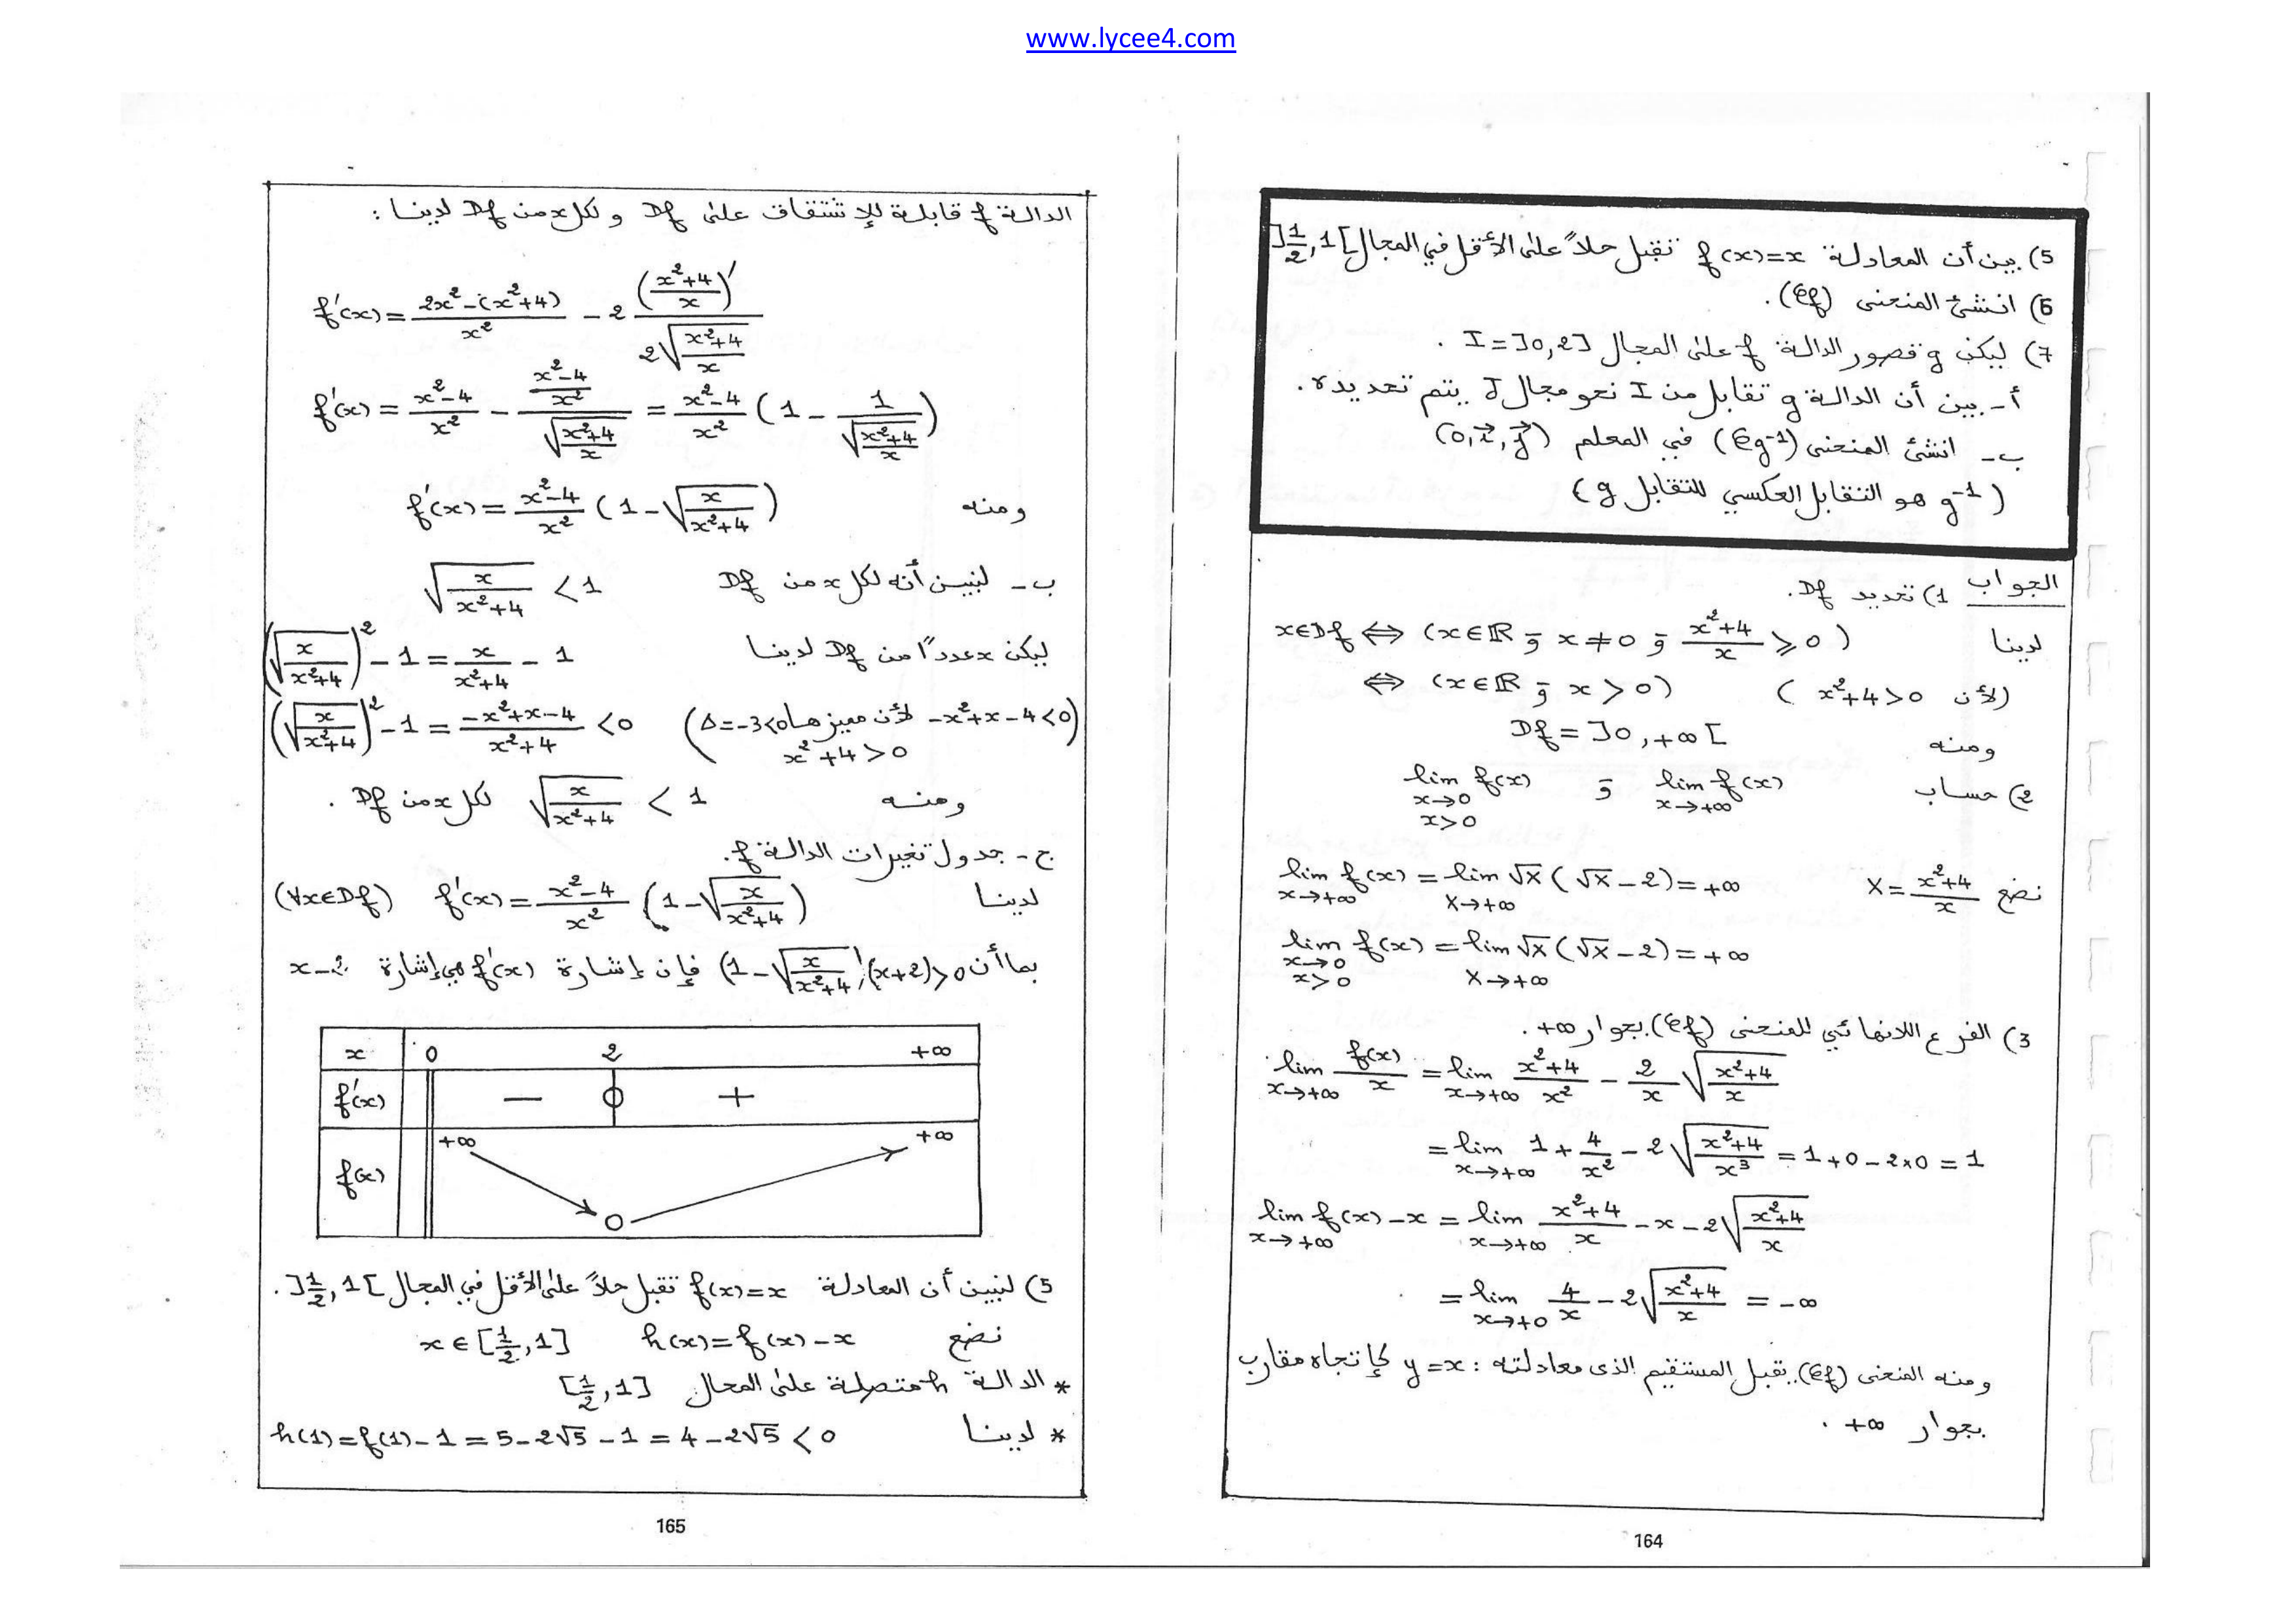 www.lycee4.com
5) بين أن المعادلة f(x)=x تقبل حلاً على الأقل في المجال ]1/2, 1[
6) انشئ المنحنى (Cf).
7) ليكن g قصور الدالة f على المجال I=]0,2] .
أ- بين أن الدالة g تقابل من I نحو مجال J يتم تحديده.
ب- انشئ المنحنى (Cg⁻¹) في المعلم (0,i⃗,j⃗)
(g⁻¹ هو التقابل العكسي للتقابل g)
الجواب 1) تحديد Df.
لدينا x∈Df ⇔ (x∈ℝ و x≠0 و (x²+4)/x ⩾ 0)
⇔ (x∈ℝ و x>0) (لأن x²+4>0)
ومنه Df = ]0,+∞[
2) حساب lim_{x→+∞} f(x) و lim_{x→0, x>0} f(x)
نضع X = (x²+4)/x lim_{x→+∞} f(x) = lim_{X→+∞} √X(√X-2) = +∞
lim_{x→0, x>0} f(x) = lim_{X→+∞} √X(√X-2) = +∞
3) الفرع اللانهائي للمنحنى (Cf) بجوار +∞.
lim_{x→+∞} f(x)/x = lim_{x→+∞} (x²+4)/x² - 2/x √((x²+4)/x)
= lim_{x→+∞} 1 + 4/x² - 2√((x²+4)/x³) = 1+0-2×0 = 1
lim_{x→+∞} f(x)-x = lim_{x→+∞} (x²+4)/x - x - 2√((x²+4)/x)
= lim_{x→+0} 4/x - 2√((x²+4)/x) = -∞
ومنه المنحنى (Cf) يقبل المستقيم الذى معادلته : y=x كإتجاه مقارب
بجوار +∞ .
164
الدالة f قابلة للإشتقاق على Df و لكل x من Df لدينا :
f'(x) = (2x²-(x²+4))/x² - 2 ((x²+4)/x)'/(2√((x²+4)/x))
f'(x) = (x²-4)/x² - ((x²-4)/x²)/√((x²+4)/x) = (x²-4)/x² (1 - 1/√((x²+4)/x))
ومنه f'(x) = (x²-4)/x² (1-√(x/(x²+4)))
ب- لنبين أنه لكل x من Df √(x/(x²+4)) < 1
ليكن x عدداً من Df لدينا (√(x/(x²+4)))² - 1 = x/(x²+4) - 1
(√(x/(x²+4)))² - 1 = (-x²+x-4)/(x²+4) < 0 (-x²+x-4<0 لأن مميزها Δ=-3<0
x²+4>0)
ومنه √(x/(x²+4)) < 1 لكل x من Df .
ج- جدول تغيرات الدالة f.
لدينا f'(x) = (x²-4)/x² (1-√(x/(x²+4))) (∀x∈Df)
بما أن (1-√(x/(x²+4)))(x+2)>0 فإن إشارة f'(x) هي إشارة x-2
x 0 2 +∞
f'(x) - 0 +
f(x) +∞ 0 +∞
5) لنبين أن المعادلة f(x)=x تقبل حلاً على الأقل في المجال ]1/2, 1[ .
نضع h(x)=f(x)-x x∈[1/2,1]
* الدالة h متصلة على المجال [1/2,1]
* لدينا h(1)=f(1)-1 = 5-2√5-1 = 4-2√5 < 0
165